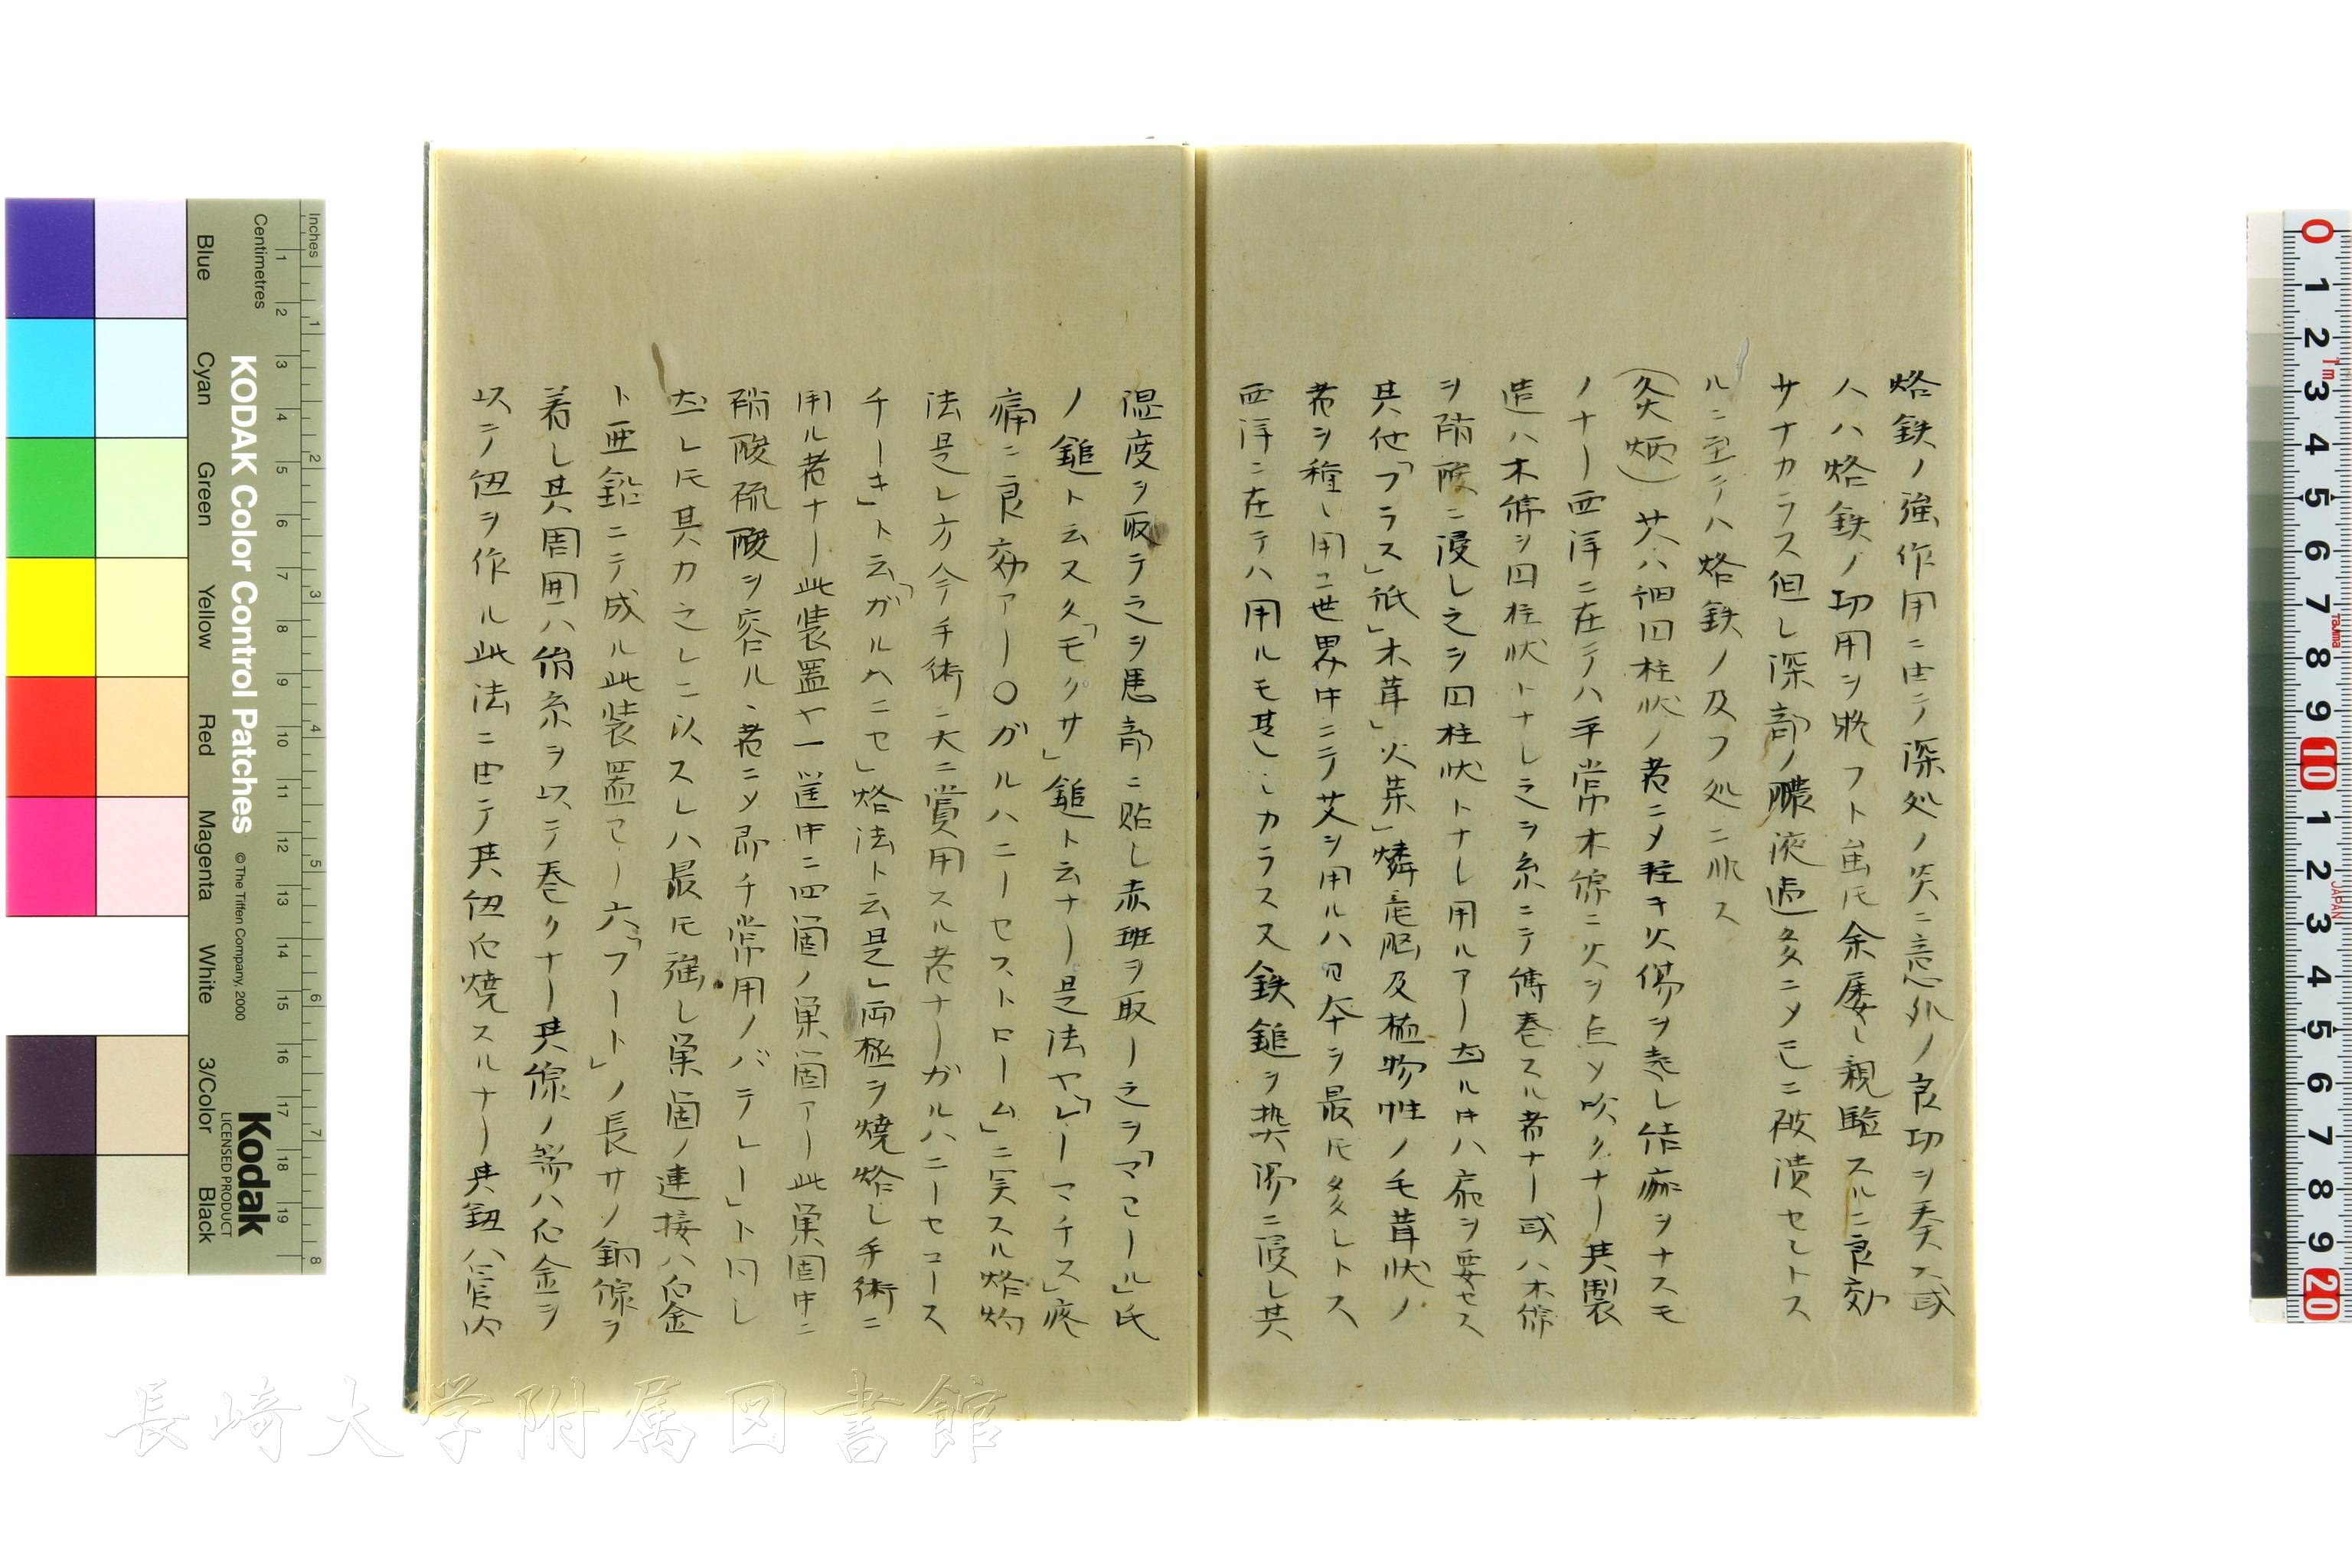 烙鉄ノ強作用ニ由テ深処ノ炎ニ意外ノ良功ヲ奏ス或
ハハ烙鉄ノ功用ヲ狀フト虽𪜈余屡〻親驗スルニ良効
サナカラス但し深部ノ膿液過多ニメ已ニ破潰セントス
ルニ至テハ烙鉄ノ及フ処ニ非ス
(灸炳) 艾ハ細囙柱状ノ者ニメ輕キ火傷ヲ起し結痂ヲナスモ
ノナー西洋ニ在テハ平常木綿ニ火ヲ点メ吹クナー其製
造ハ木綿ヲ囙柱状トナし之ヲ糸ニテ傅巻スル者ナー或ハ木綿
ヲ硝酸ニ浸し之ヲ囙柱状トナし用ルアー 此ルハ ヲ要セス
其他「フラス」紙」木茸」火薬」燐竜脳及植物性ノ毛茸状ノ
者ヲ種〻用ユ世界中ニテ艾ヲ用ルハ日本ヲ最𪜈多シトス
西洋ニ在テハ用ルモ甚シカラス又鉄鎚ヲ熱湯ニ浸し其
温度ヲ取テ之ヲ患部ニ貼し赤斑ヲ取ー之ヲ「マヨール」氏
ノ鎚ト云又久「モグサ」鎚ト云ナー是法ヤ「レーマチス」疼
痛ニ良効アー○ガルハニーセストローム」ニ実スル烙灼
法是レ方今手術ニ大ニ賞用スル者ナーガルハニーセコース
チーキ」ト云「ガルハニセ」烙法ト云是」両極ヲ焼烙し手術ニ
用ル者ナー此装置ヤ一筐中ニ四箇ノ巣箇アー此巣箇中ニ
硝酸硫酸ヲ容ル丶者ニメ即チ常用ノバテレー」ト同し
然レ𪜈其力之レニ以スレハ最𪜈強し巣箇ノ連接ハ白金
ト亜鉛ニテ成ル此装置ヨー六「フート」ノ長サノ銅線ヲ
着し其周囲ハ絹糸ヲ以テ巻クナー其線ノ端ハ白金ヲ
以テ鈕ヲ作ル此法ニ由テ其鈕白焼スルナー其鈕ハ管内
Inches
Centimetres
Blue
Cyan
Green
Yellow
Red
Magenta
White
3/Color
Black
KODAK Color Control Patches
© The Tiffen Company, 2000
Kodak
LICENSED PRODUCT
長崎大学附属図書館